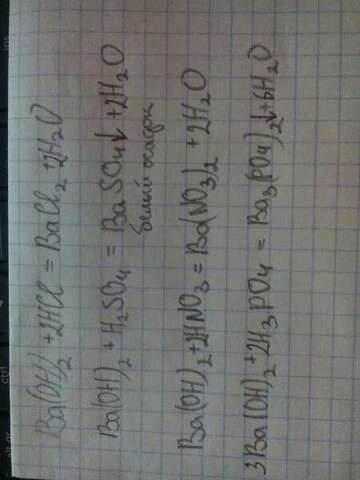 Ba(OH)₂ + 2HCl = BaCl₂ + 2H₂O
Ba(OH)₂ + H₂SO₄ = BaSO₄↓ + 2H₂O
белый осадок
Ba(OH)₂ + 2HNO₃ = Ba(NO₃)₂ + 2H₂O
3Ba(OH)₂ + 2H₃PO₄ = Ba₃(PO₄)₂↓ + 6H₂O